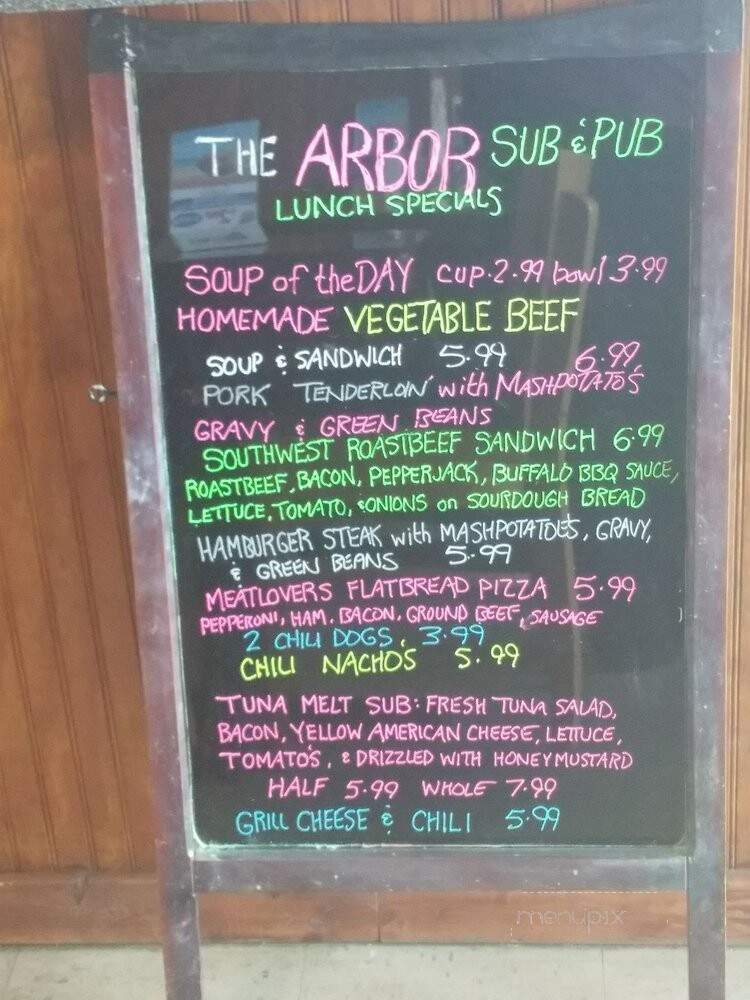 THE ARBOR SUB & PUB
LUNCH SPECIALS
SOUP of the DAY CUP·2·99 bowl 3·99
HOMEMADE VEGETABLE BEEF
SOUP & SANDWICH 5·99 6·99
PORK TENDERLOIN with MASHPOTATO'S
GRAVY & GREEN BEANS
SOUTHWEST ROASTBEEF SANDWICH 6·99
ROASTBEEF, BACON, PEPPERJACK, BUFFALO BBQ SAUCE,
LETTUCE, TOMATO, & ONIONS on SOURDOUGH BREAD
HAMBURGER STEAK with MASHPOTATOES, GRAVY,
& GREEN BEANS 5·99
MEATLOVERS FLATBREAD PIZZA 5·99
PEPPERONI, HAM, BACON, GROUND BEEF, SAUSAGE
2 CHILI DOGS, 3·99
CHILI NACHO'S 5·99
TUNA MELT SUB: FRESH TUNA SALAD,
BACON, YELLOW AMERICAN CHEESE, LETTUCE,
TOMATO'S, & DRIZZLED WITH HONEY MUSTARD
HALF 5·99 WHOLE 7·99
GRILL CHEESE & CHILI 5·99
menupix